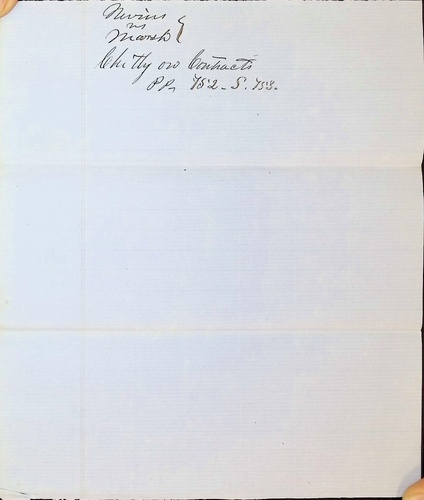 Nevins
vs
Marsh }
Chitty on Contracts
PP. 752 - S. 753.